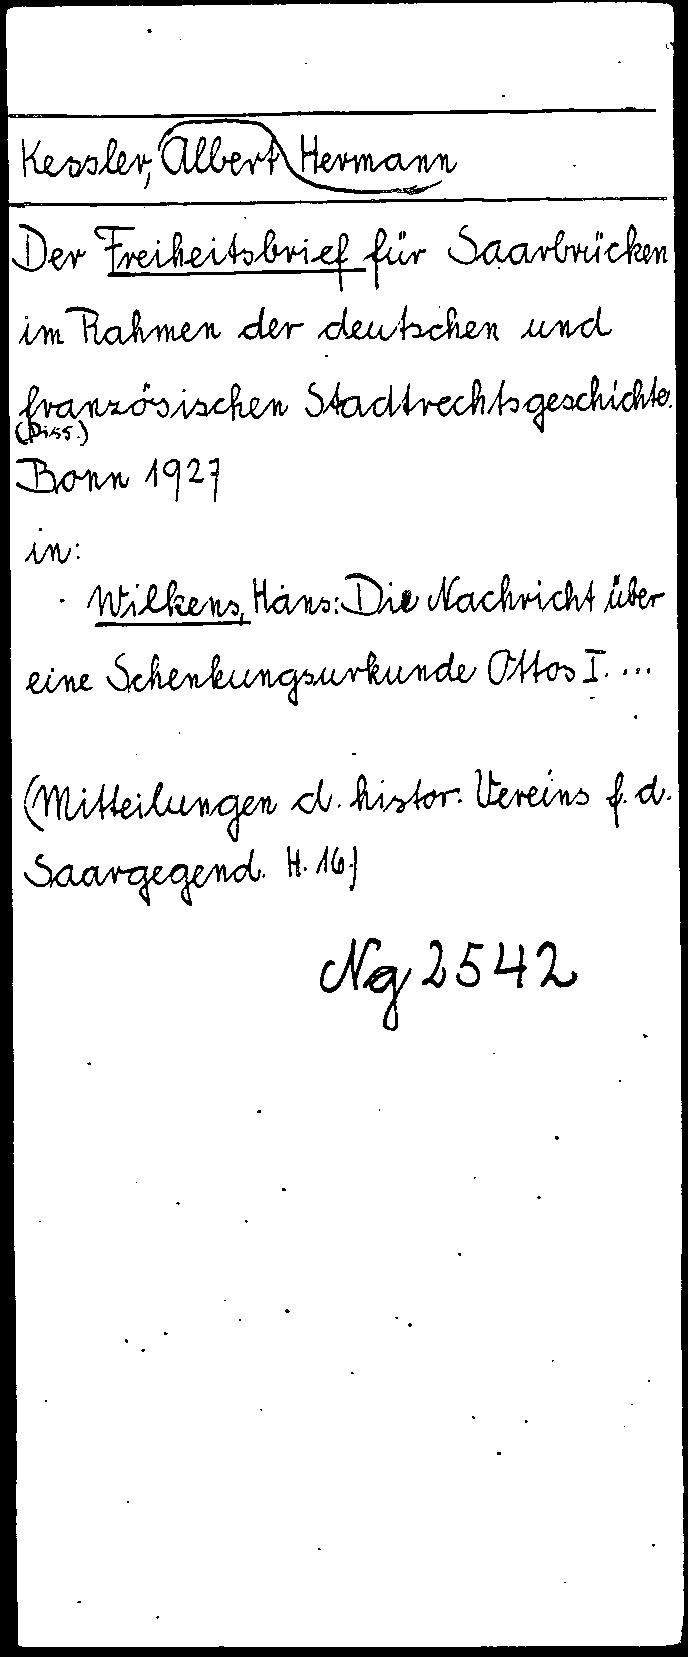 Kessler, Albert Hermann
Der Freiheitsbrief für Saarbrücken
im Rahmen der deutschen und
französischen Stadtrechtsgeschichte.
(Diss.)
Bonn 1927
in:
Wilkens, Hans: Die Nachricht über
eine Schenkungsurkunde Ottos I. ...
(Mitteilungen d. histor. Vereins f. d.
Saargegend. H. 16.)
Ng 2542